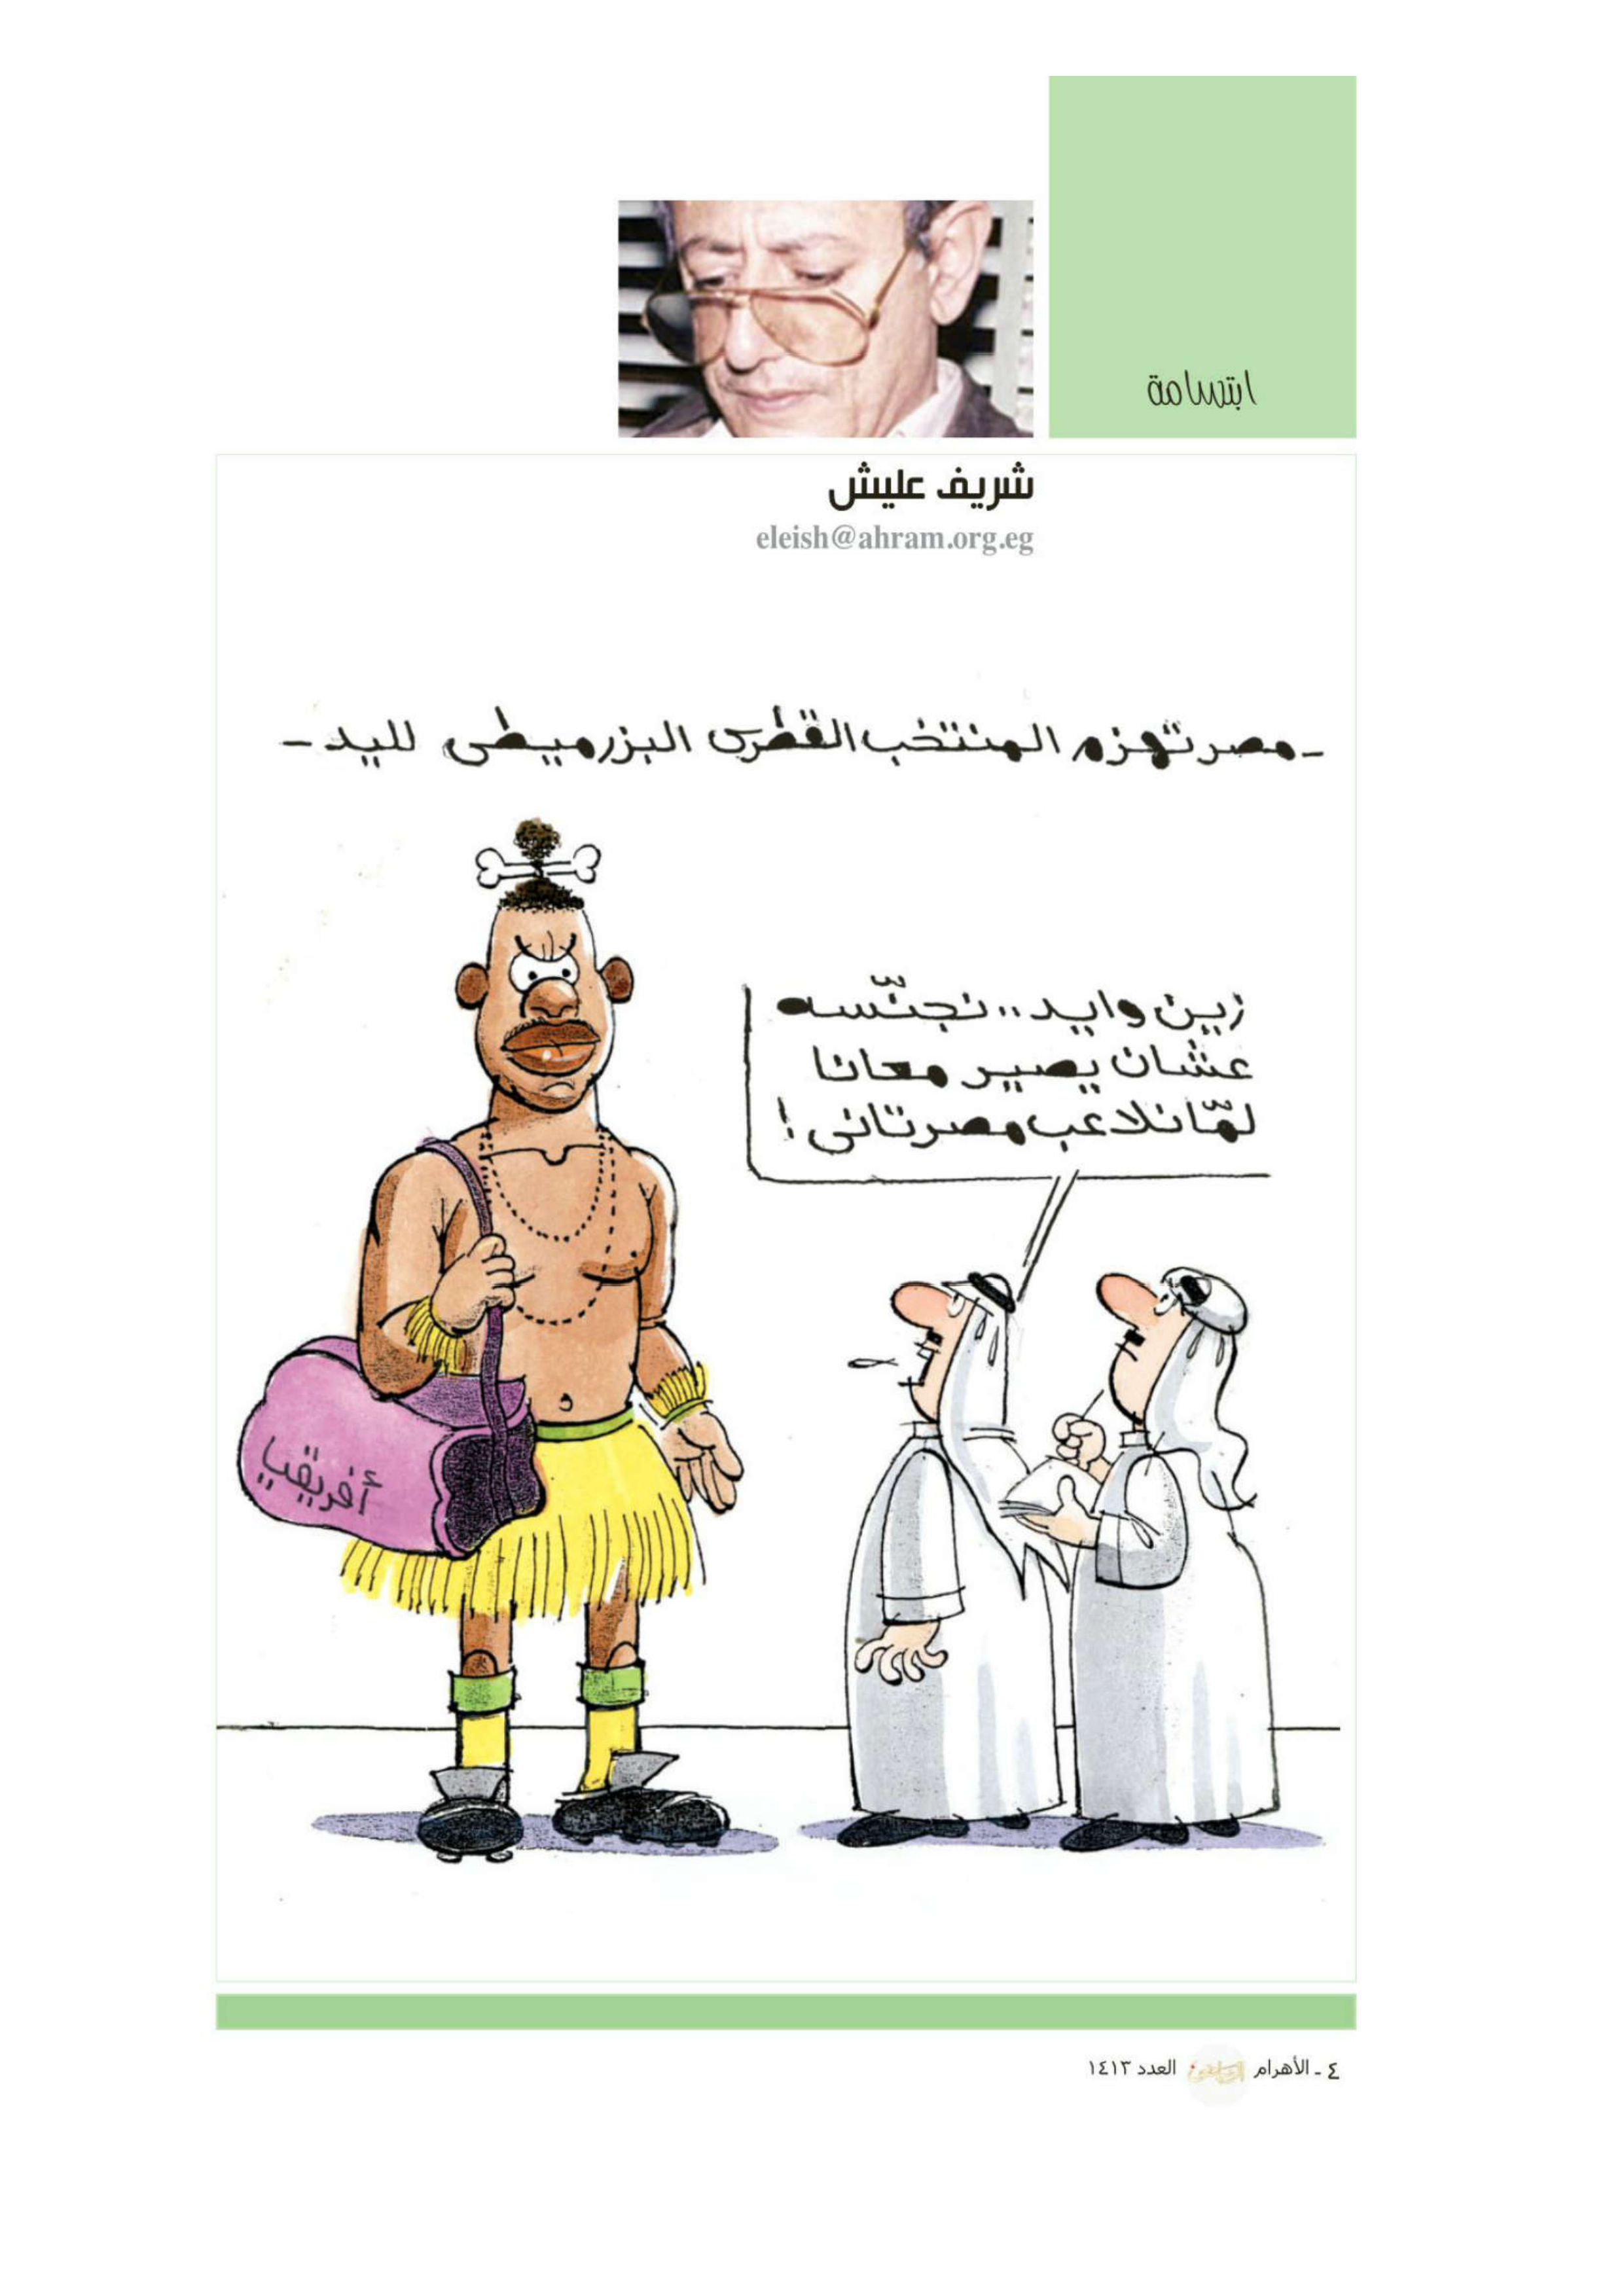 ابتسامة
شريف عليش
eleish@ahram.org.eg
- مصر تهزم المنتخب القطرى البزرميطى لليد -
زين وايد.. نجنّسه
عشان يصير معانا
لمّا نلاعب مصر تانى!
أفريقي
٤ ـ الأهرام الرياضى العدد ١٤١٣